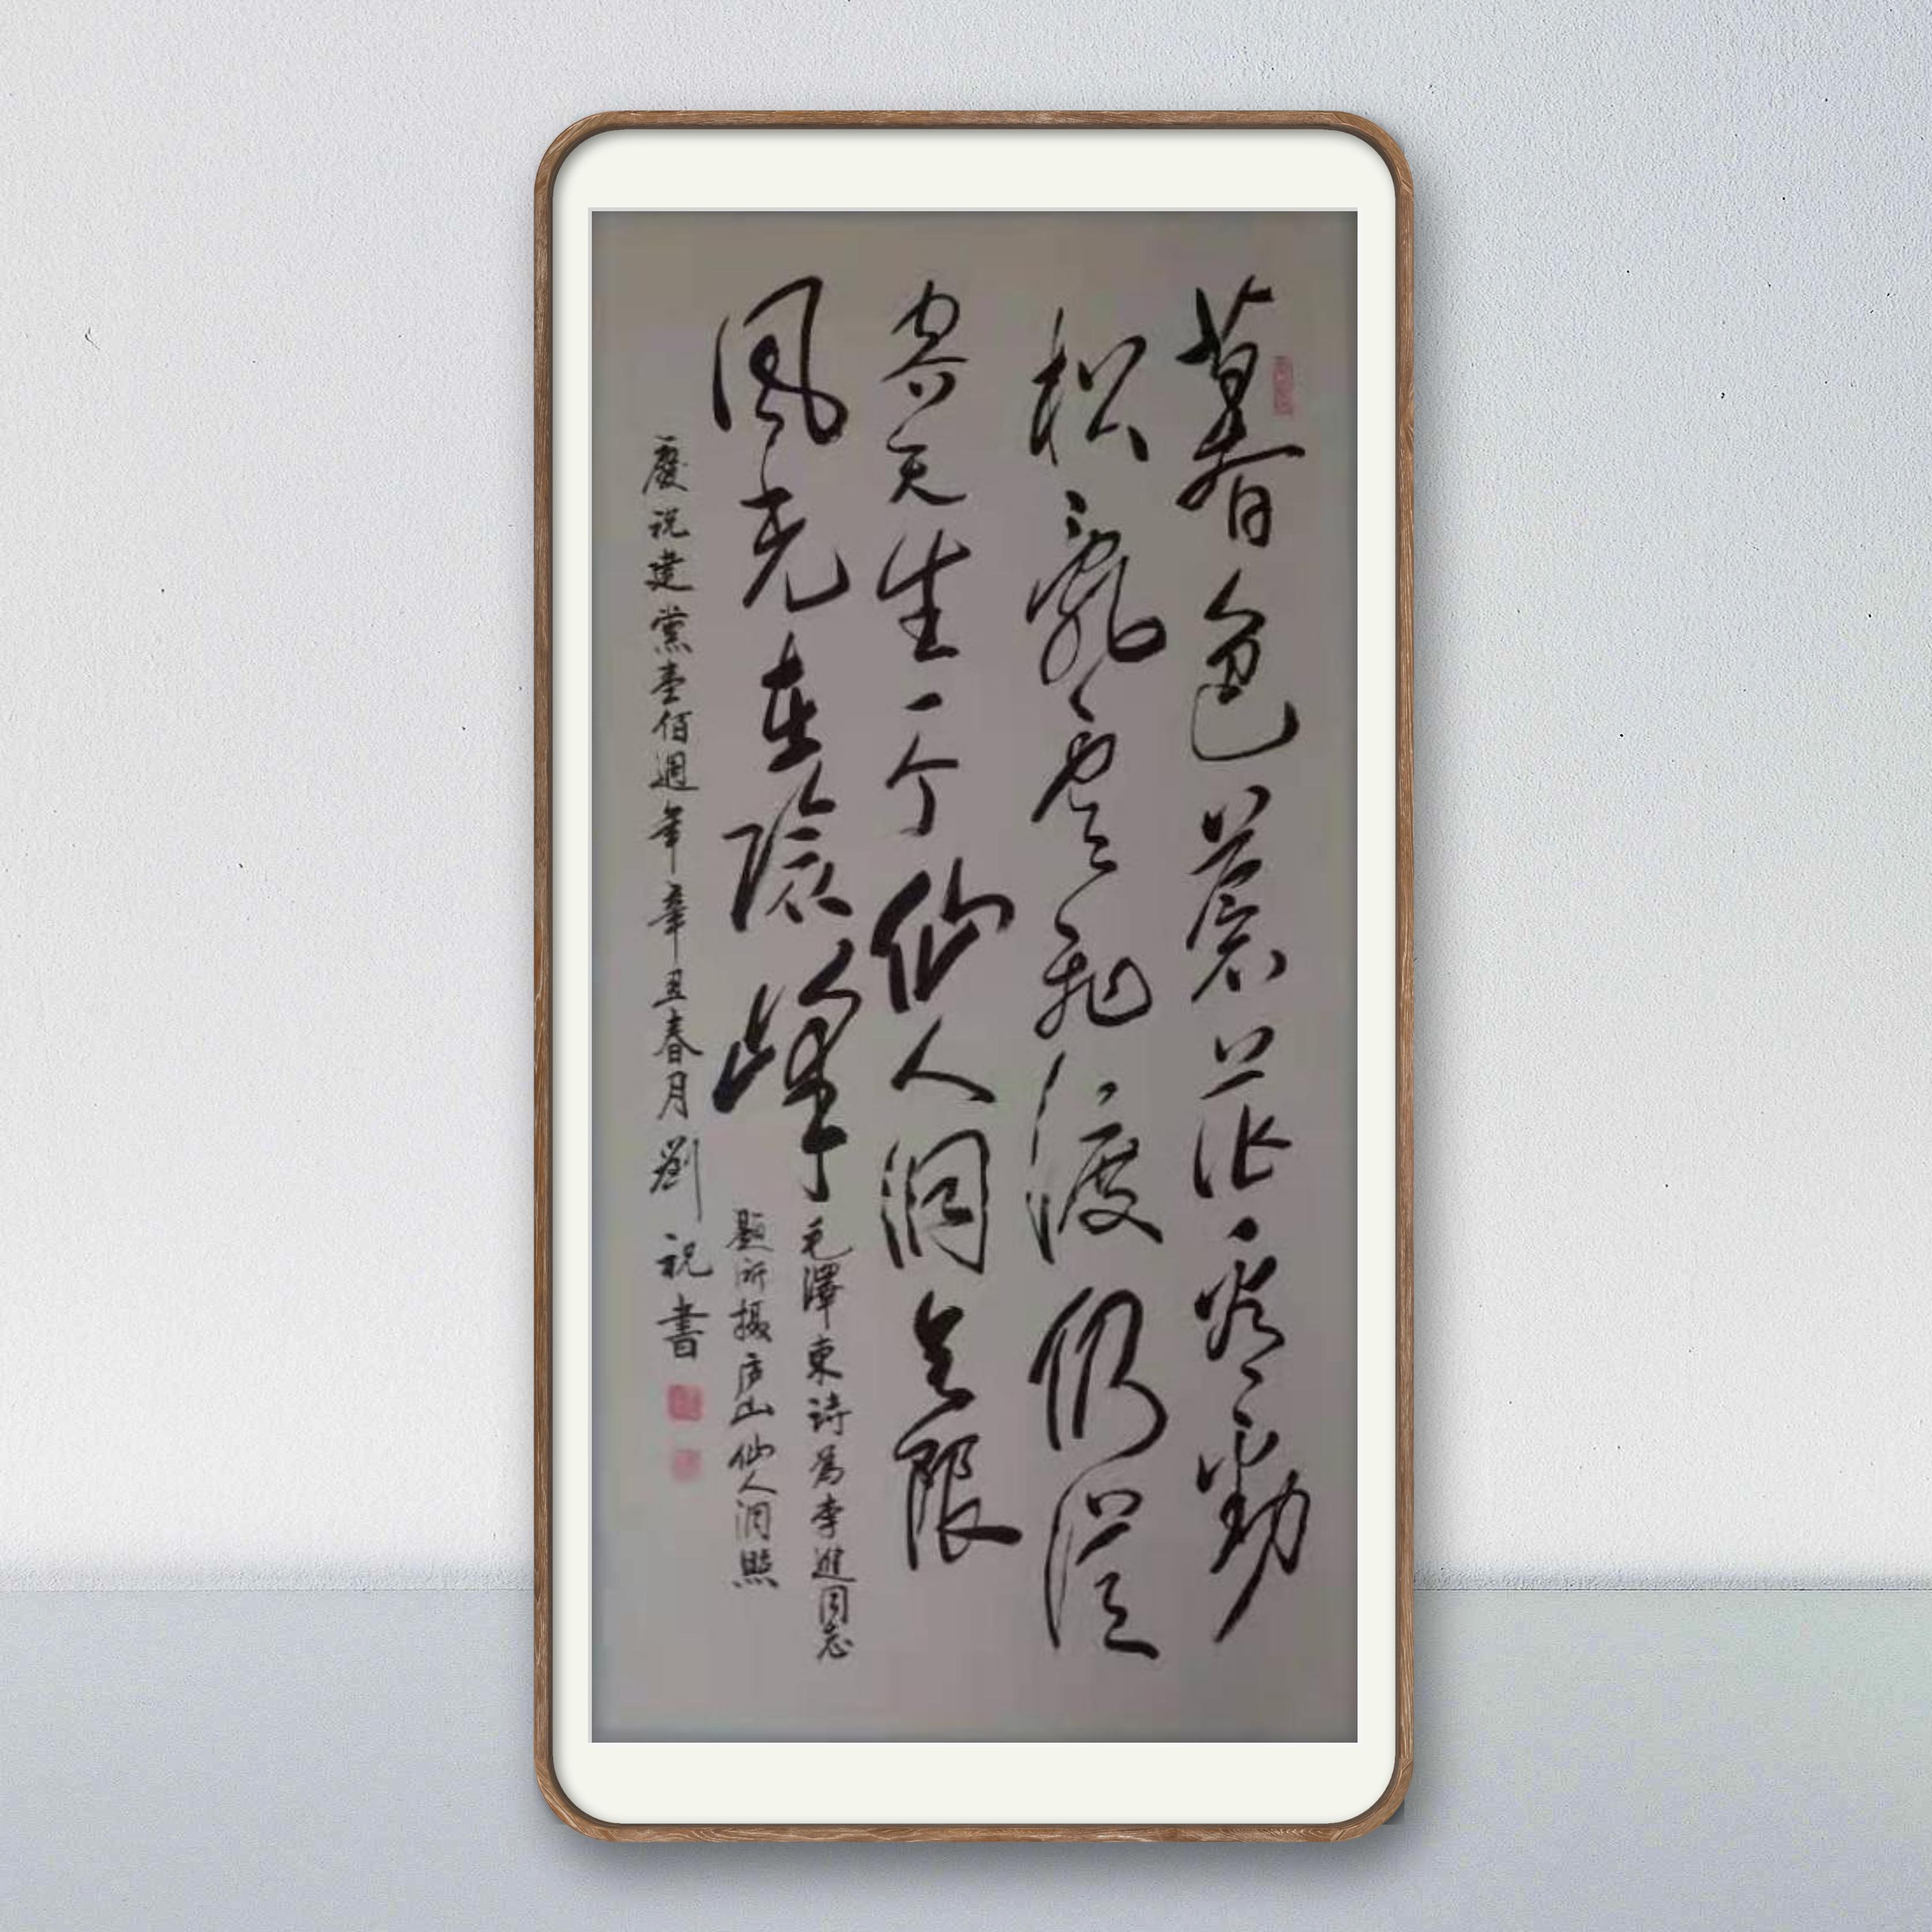 暮色蒼茫看勁
松亂雲飛渡仍從
容天生一个仙人洞無限
風光在險峰
毛澤東詩為李進同志
題所摄庐山仙人洞照
慶祝建黨壹佰週年辛丑春月劉祝書